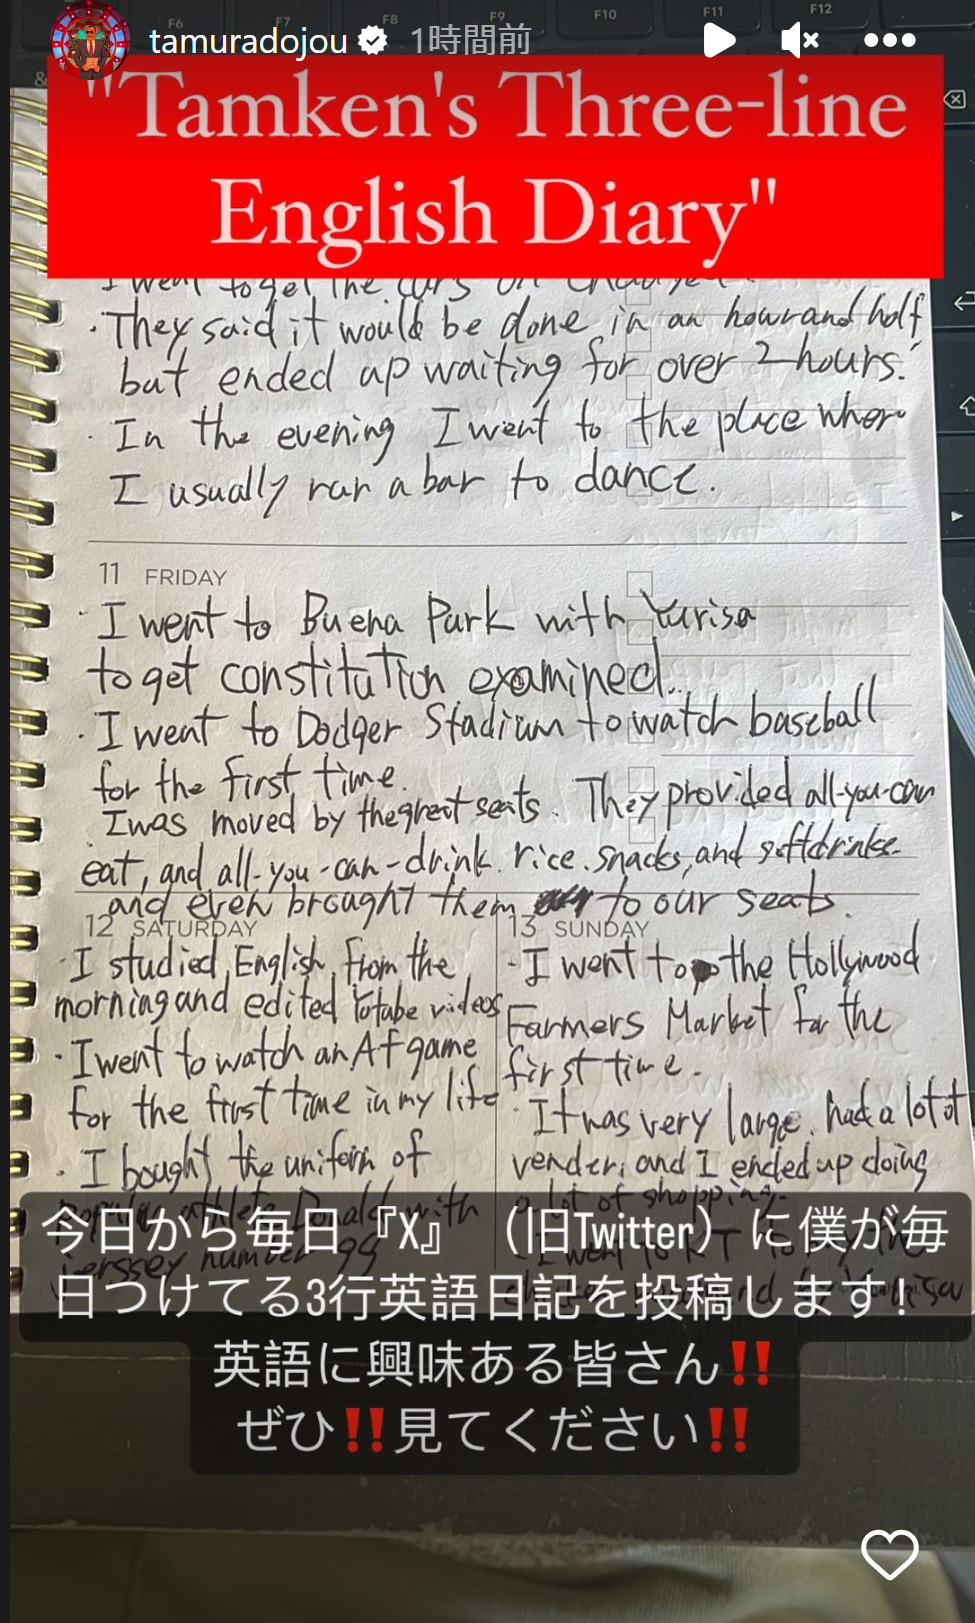 F6 F7 F8 F9 F10 F11 F12
tamuradojou 1時間前
"Tamken's Three-line
English Diary"
I went to get the
· They said it would be done in an hour and half
but ended up waiting for over 2 hours.
· In the evening I went to the place where
I usually ran a bar to dance.
11 FRIDAY
· I went to Buena Park with Yurisa
to get constitution examined.
· I went to Dodger Stadium to watch baseball
for the first time.
I was moved by the great seats. They provided all-you-can
eat, and all-you-can-drink. rice. snacks, and softdrinks.
and even brought them to our seats.
12 SATURDAY
· I studied English from the
morning and edited Yotube videos
· I went to watch an AF game
for the first time in my life
· I bought the uniform of
athlete Donald with
jerssey number 99
13 SUNDAY
· I went to the Hollywood
Farmers Market for the
first time.
· It was very large. had a lot of
vender, and I ended up doing
a lot of shopping.
· I went to KT to buy the
今日から毎日『X』（旧Twitter）に僕が毎
日つけてる3行英語日記を投稿します！
英語に興味ある皆さん‼️
ぜひ‼️見てください‼️